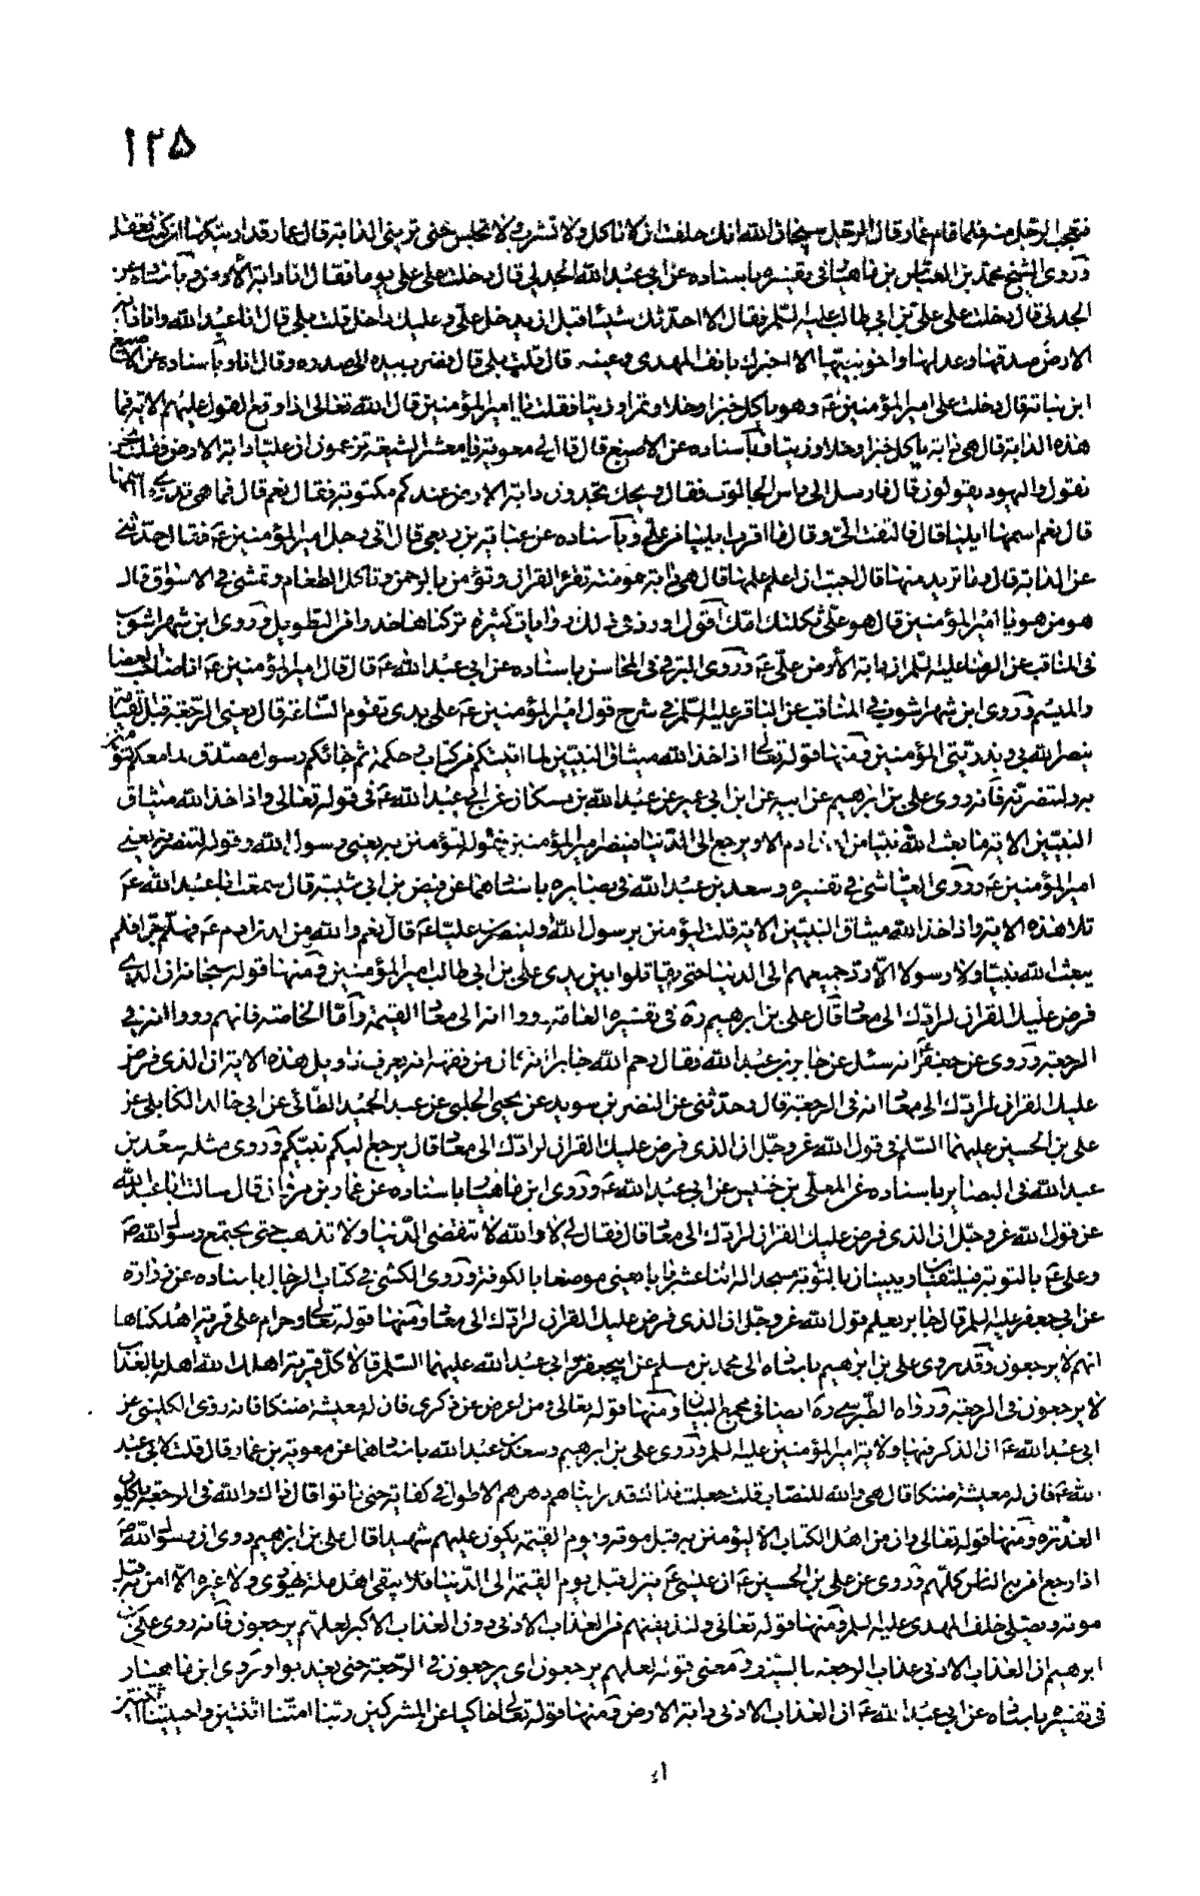 ١٢۵
فتعجب الرجل منه فلما قام عمار قال الرجل سبحان الله انك حلفت ان لا تاكل ولا تشرب ولا تجلس حتى تريني الدابة قال عمار قد اريتكها ان كنت تعقل
وروى الشيخ محمد بن العباس بن ماهيار في تفسيره باسناده عن ابي عبد الله الجدلي قال دخلت على علي يوما فقال انا دابة الأرض وباسناده عن
الجدلي قال دخلت على علي بن ابي طالب عليه السلم فقال الا احدثك شيئا قبل ان يدخل علي وعليك داخل قلت بلى قال انا عبد الله وانا دابة
الارض صدقها وعدلها واخو نبيها الا اخبرك بانف المهدى وعينه قال قلت بلى قال فضرب بيده الى صدره وقال انا وباسناده عن الاصبغ
ابن نباتة قال دخلت على امير المؤمنين عة وهو ياكل خبزا وخلا وزيتا فقلت يا امير المؤمنين قال الله تعالى اذا وقع القول عليهم الاية فما
هذه الدابة قال هي دابة ياكل خبزا وخلا وزيتا وباسناده عن الاصبغ قال قال لي معوية يا معشر الشيعة تزعمون ان عليا دابة الارض فقلت نحن
نقول واليهود يقولون قال فارسل الى راس الجالوت فقال ويحك تجدون دابة الارض عندكم مكتوبة فقال نعم قال فما هي تدري ما اسمها
قال نعم اسمها ايليا قال فالتفت الي وقال ما اقرب ايليا من علي وباسناده عن عباية بن ربعي قال اتى رجل امير المؤمنين عة فقال حدثني
عن الدابة قال وما تريد منها قال احببت ان اعلم علمها قال هي دابة مومنة تقرء القران وتؤمن بالرحمن وتاكل الطعام وتمشي في الاسواق قال
هو من هو يا امير المؤمنين قال هو علي ثكلتك امك اقول ورد في ذلك روايات كثيرة تركناها خوف التطويل وروى ابن شهر اشوب
في المناقب عن الرضا عليه السلم ان دابة الأرض علي عة وروى البرقي في المحاسن باسناده عن ابي عبد الله عة قال قال امير المؤمنين عة انا صاحب العصا
والميسم وروى ابن شهر اشوب في المناقب عن الباقر عليه السلم في شرح قول امير المؤمنين عة على يدي تقوم الساعة قال يعني الرجعة قبل القيامة
ينصر الله بي وبذريتي المؤمنين ومنها قوله تعالى اذ اخذ الله ميثاق النبيين لما اتيتكم من كتاب وحكمة ثم جائكم رسول مصدق لما معكم لتؤمنن
به ولتنصرنه فانه روى علي بن ابرهيم عن ابيه عن ابن ابي عمير عن عبد الله بن مسكان عن ابي عبد الله عة في قوله تعالى واذ اخذ الله ميثاق
النبيين الاية ما بعث الله نبيا من لدن ادم الا ويرجع الى الدنيا فينصر امير المؤمنين بقوله لتؤمنن به يعني رسول الله وقوله لتنصرنه يعني
امير المؤمنين عة وروى العياشي في تفسيره وسعد بن عبد الله في بصايره باسنادهما عن فيض بن ابي شيبة قال سمعت ابا عبد الله عة
تلا هذه الاية واذ اخذ الله ميثاق النبيين الاية قلت ليؤمنن برسول الله ولينصرن عليا عة قال نعم والله من لدن ادم عة فهلم جرا فلم
يبعث الله نبيا ولا رسولا الا رد جميعهم الى الدنيا حتى يقاتلوا بين يدي علي بن ابي طالب امير المؤمنين ومنها قوله سبحانه ان الذي
فرض عليك القران لرادك الى معاد قال علي بن ابرهيم ره في تفسيره العامة رووا انه الى معاد القيمة واما الخاصة فانهم رووا انه في
الرجعة وروى عن جعفر انه سئل عن جابر بن عبد الله فقال رحم الله جابرا انه كان من فقهه انه يعرف تاويل هذه الاية ان الذي فرض
عليك القران لرادك الى معاد انه في الرجعة قال وحدثني عن النضر بن سويد عن يحيى الحلبي عن عبد الحميد الطائي عن ابي خالد الكابلي عن
علي بن الحسين عليهما السلم في قول الله عز وجل ان الذي فرض عليك القران لرادك الى معاد قال يرجع اليكم نبيكم وروى مثله سعد بن
عبد الله في البصاير باسناده عن المعلى بن خنيس عن ابي عبد الله عة وروى ابن ماهيار باسناده عن عمار بن مروان قال سالت ابا عبد الله
عن قول الله عز وجل ان الذي فرض عليك القران لرادك الى معاد قال فقال لي لا والله لا تنقضي الدنيا ولا تذهب حتى يجتمع رسول الله صة
وعلي عة بالثوية فيلتقيان ويبنيان بالثوية مسجدا له اثنا عشر الف باب يعني موضعا بالكوفة وروى الكشي في كتاب الرجال باسناده عن زرارة
عن ابي جعفر عليه السلم قال جابر يعلم قول الله عز وجل ان الذي فرض عليك القران لرادك الى معاد ومنها قوله تعالى وحرام على قرية اهلكناها
انهم لا يرجعون وقد روى علي بن ابرهيم باسناده الى محمد بن مسلم عن ابي جعفر وابي عبد الله عليهما السلم قالا كل قرية اهلك الله اهله بالعذاب
لا يرجعون في الرجعة ورواه الطبرسي ره ايضا في مجمع البيان ومنها قوله تعالى ومن اعرض عن ذكري فان له معيشة ضنكا فانه روى الكليني عن
ابي عبد الله عة ان الذكر فيها ولاية امير المؤمنين عليه السلم وروى علي بن ابرهيم وسعد بن عبد الله باسنادهما عن معوية بن عمار قال قلت لابي عبد
الله عة فان له معيشة ضنكا قال هي والله للنصاب قلت جعلت فداك قد رايناهم دهرهم الاطول في كفاية حتى ماتوا قال ذاك والله في الرجعة ياكلون
العذرة ومنها قوله تعالى وان من اهل الكتاب الا ليؤمنن به قبل موته ويوم القيمة يكون عليهم شهيدا قال علي بن ابرهيم روى ان رسول الله صة
اذا رجع امن به الناس كلهم وروى عن علي بن الحسين عة ان عيسى عة ينزل قبل يوم القيمة الى الدنيا فلا يبقى اهل ملة يهودي ولا غيره الا امن به قبل
موته ويصلي خلف المهدى عليه السلم ومنها قوله تعالى ولنذيقنهم من العذاب الأدنى دون العذاب الاكبر لعلهم يرجعون فانه روى علي بن
ابرهيم ان العذاب الادنى عذاب الرجعة بالسيف وفي معنى قوله لعلهم يرجعون اي يرجعون في الرجعة حتى يعذبوا وروى ابن ماهيار
في تفسيره باسناده عن ابي عبد الله عة ان العذاب الادنى دابة الارض ومنها قوله تعالى حاكيا عن المشركين ربنا امتنا اثنتين واحييتنا اثنتين